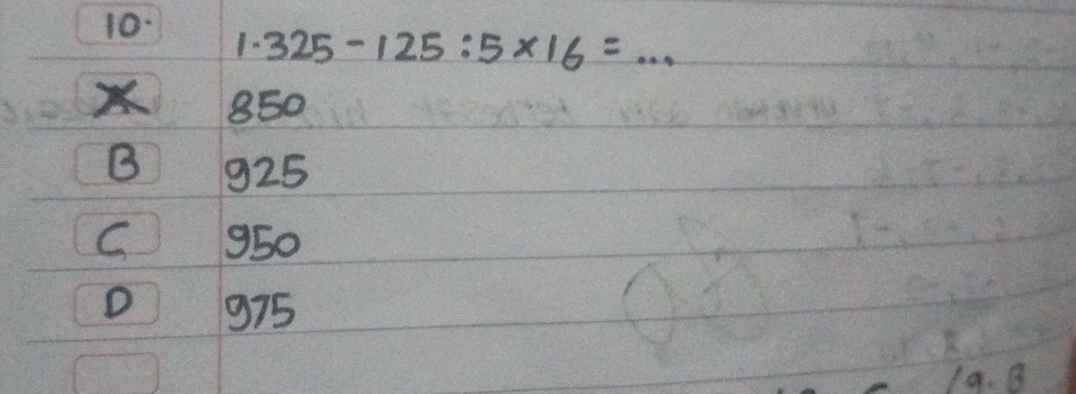 10. 1.325 - 125 : 5 × 16 = ...
850
B 925
C 950
D 975
19. B